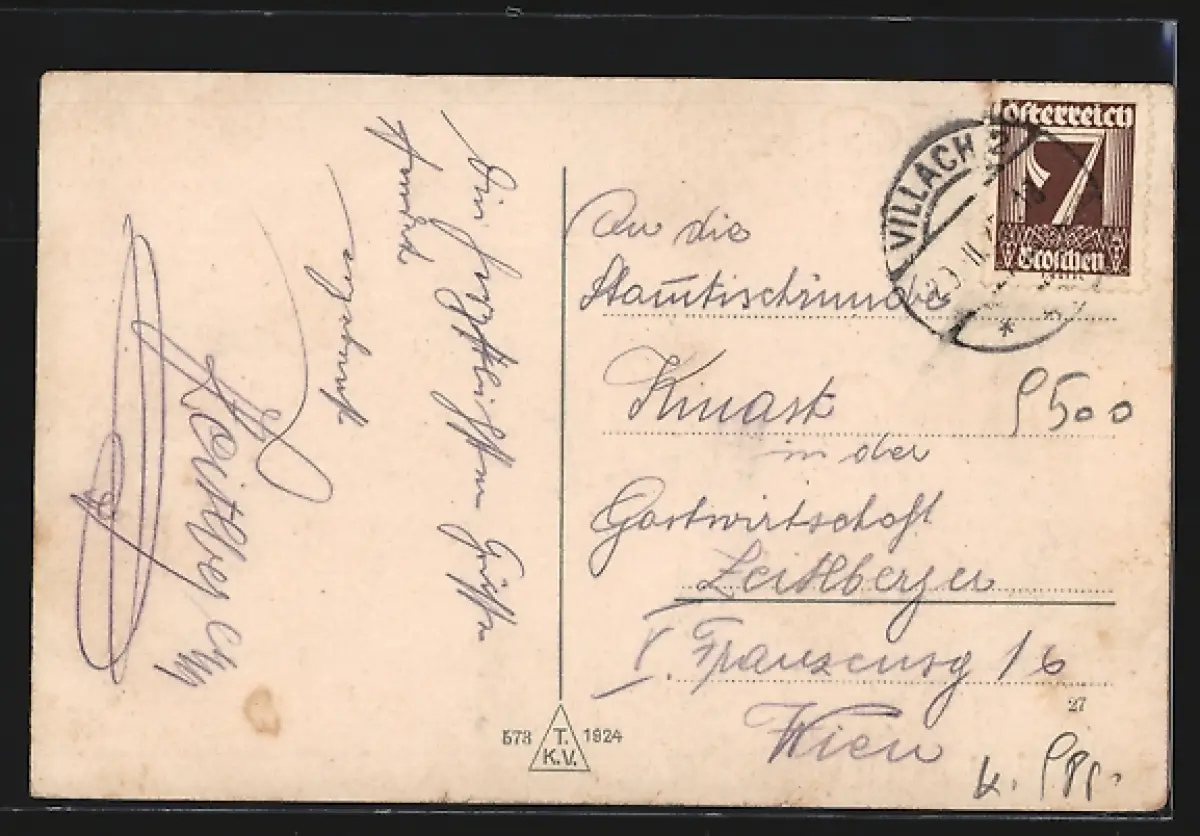 Die herzlichsten Grüße
sendet
Zeitlberger
An die
Stammtischrunde
Kinast
in der
Gastwirtschaft
Zeitlberger
V. Franzensg 16
Wien
VILLACH 2
Österreich
7
Groschen
9500
27
573 T.K.V. 1924